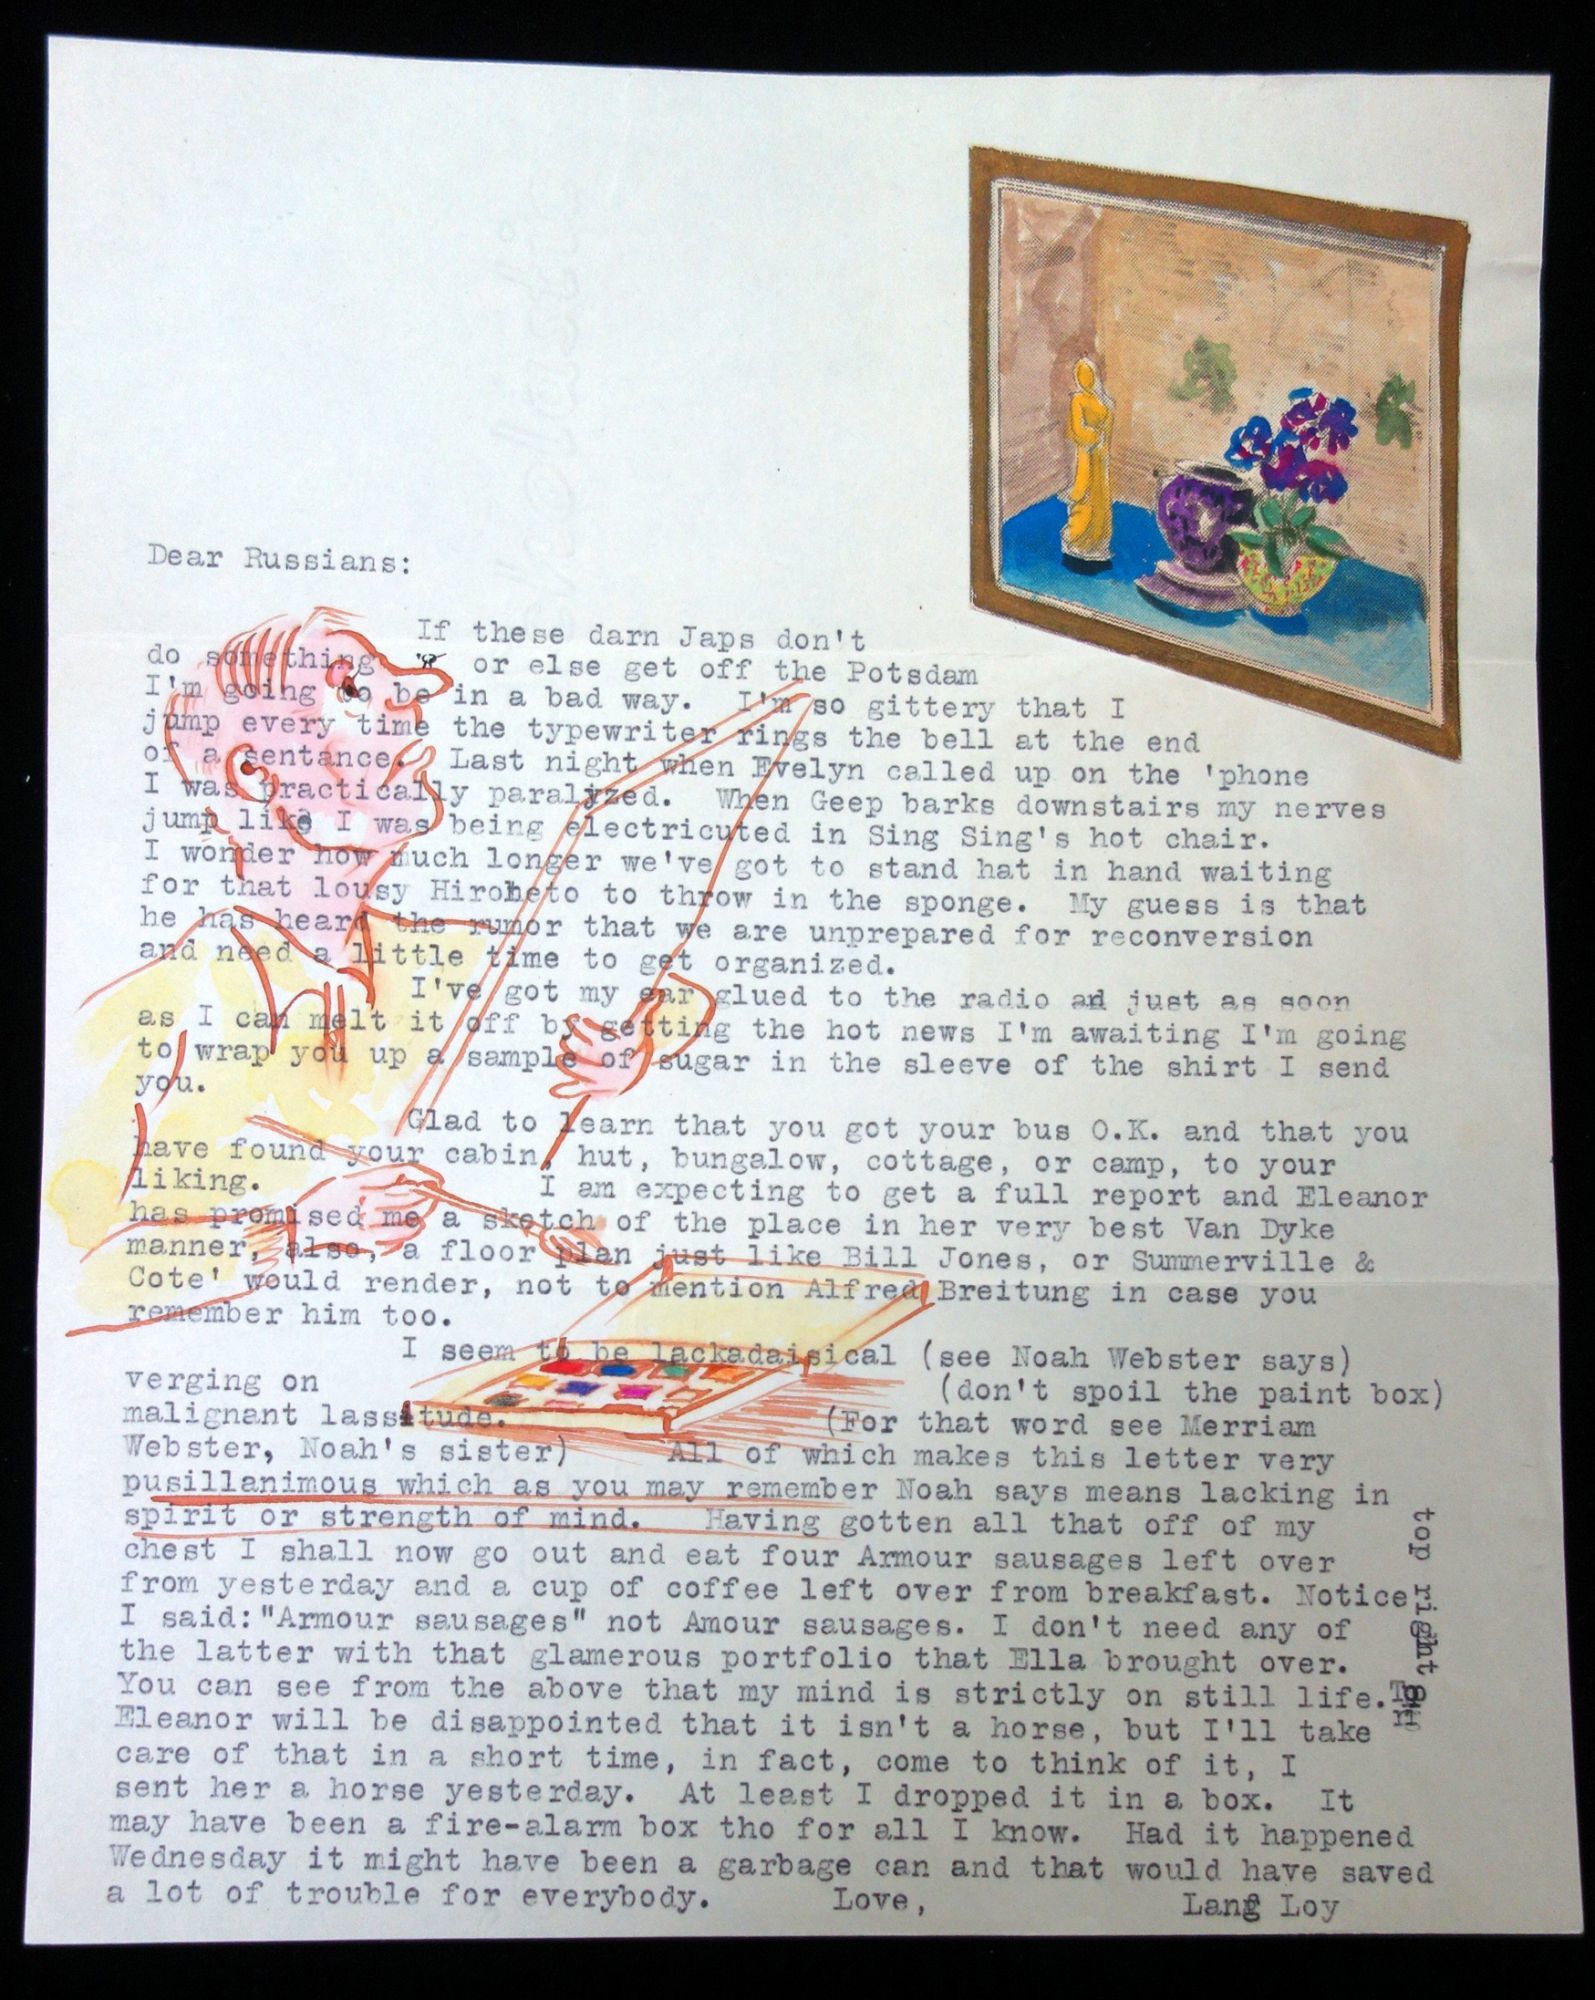 Dear Russians:
If these darn Japs don't
do something or else get off the Potsdam
I'm going to be in a bad way. I'm so gittery that I
jump every time the typewriter rings the bell at the end
of a sentance. Last night when Evelyn called up on the 'phone
I was practically paralyzed. When Geep barks downstairs my nerves
jump like I was being electricuted in Sing Sing's hot chair.
I wonder how much longer we've got to stand hat in hand waiting
for that lousy Hiroheto to throw in the sponge. My guess is that
he has heard the rumor that we are unprepared for reconversion
and need a little time to get organized.
I've got my ear glued to the radio ad just as soon
as I can melt it off by getting the hot news I'm awaiting I'm going
to wrap you up a sample of sugar in the sleeve of the shirt I send
you.
Glad to learn that you got your bus O.K. and that you
have found your cabin, hut, bungalow, cottage, or camp, to your
liking. I am expecting to get a full report and Eleanor
has promised me a sketch of the place in her very best Van Dyke
manner, also, a floor plan just like Bill Jones, or Summerville &
Cote' would render, not to mention Alfred Breitung in case you
remember him too.
I seem to be lackadaisical (see Noah Webster says)
verging on (don't spoil the paint box)
malignant lassitude. (For that word see Merriam
Webster, Noah's sister) All of which makes this letter very
pusillanimous which as you may remember Noah says means lacking in
spirit or strength of mind. Having gotten all that off of my
chest I shall now go out and eat four Armour sausages left over
from yesterday and a cup of coffee left over from breakfast. Notice
I said:"Armour sausages" not Amour sausages. I don't need any of
the latter with that glamerous portfolio that Ella brought over.
You can see from the above that my mind is strictly on still life.
Eleanor will be disappointed that it isn't a horse, but I'll take
care of that in a short time, in fact, come to think of it, I
sent her a horse yesterday. At least I dropped it in a box. It
may have been a fire-alarm box tho for all I know. Had it happened
Wednesday it might have been a garbage can and that would have saved
a lot of trouble for everybody. Love, Lang Loy
top right